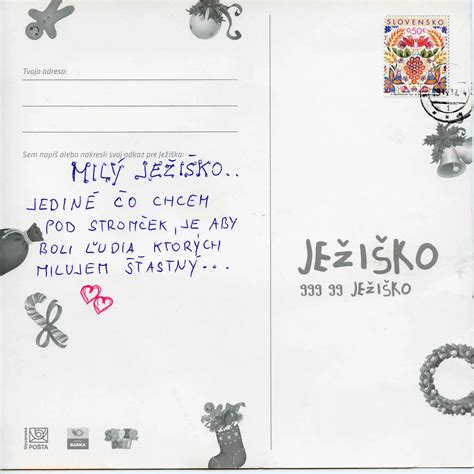 SLOVENSKO
0,50€
Tvoja adresa:
Sem napíš alebo nakresli svoj odkaz pre Ježiška:
MILÝ JEŽIŠKO..
JEDINÉ ČO CHCEM
POD STROMČEK, JE ABY
BOLI ĽUDIA KTORÝCH
MILUJEM ŠŤASTNÝ...
JEŽIŠKO
999 99 JEŽIŠKO
Slovenská
POŠTA
BANKA